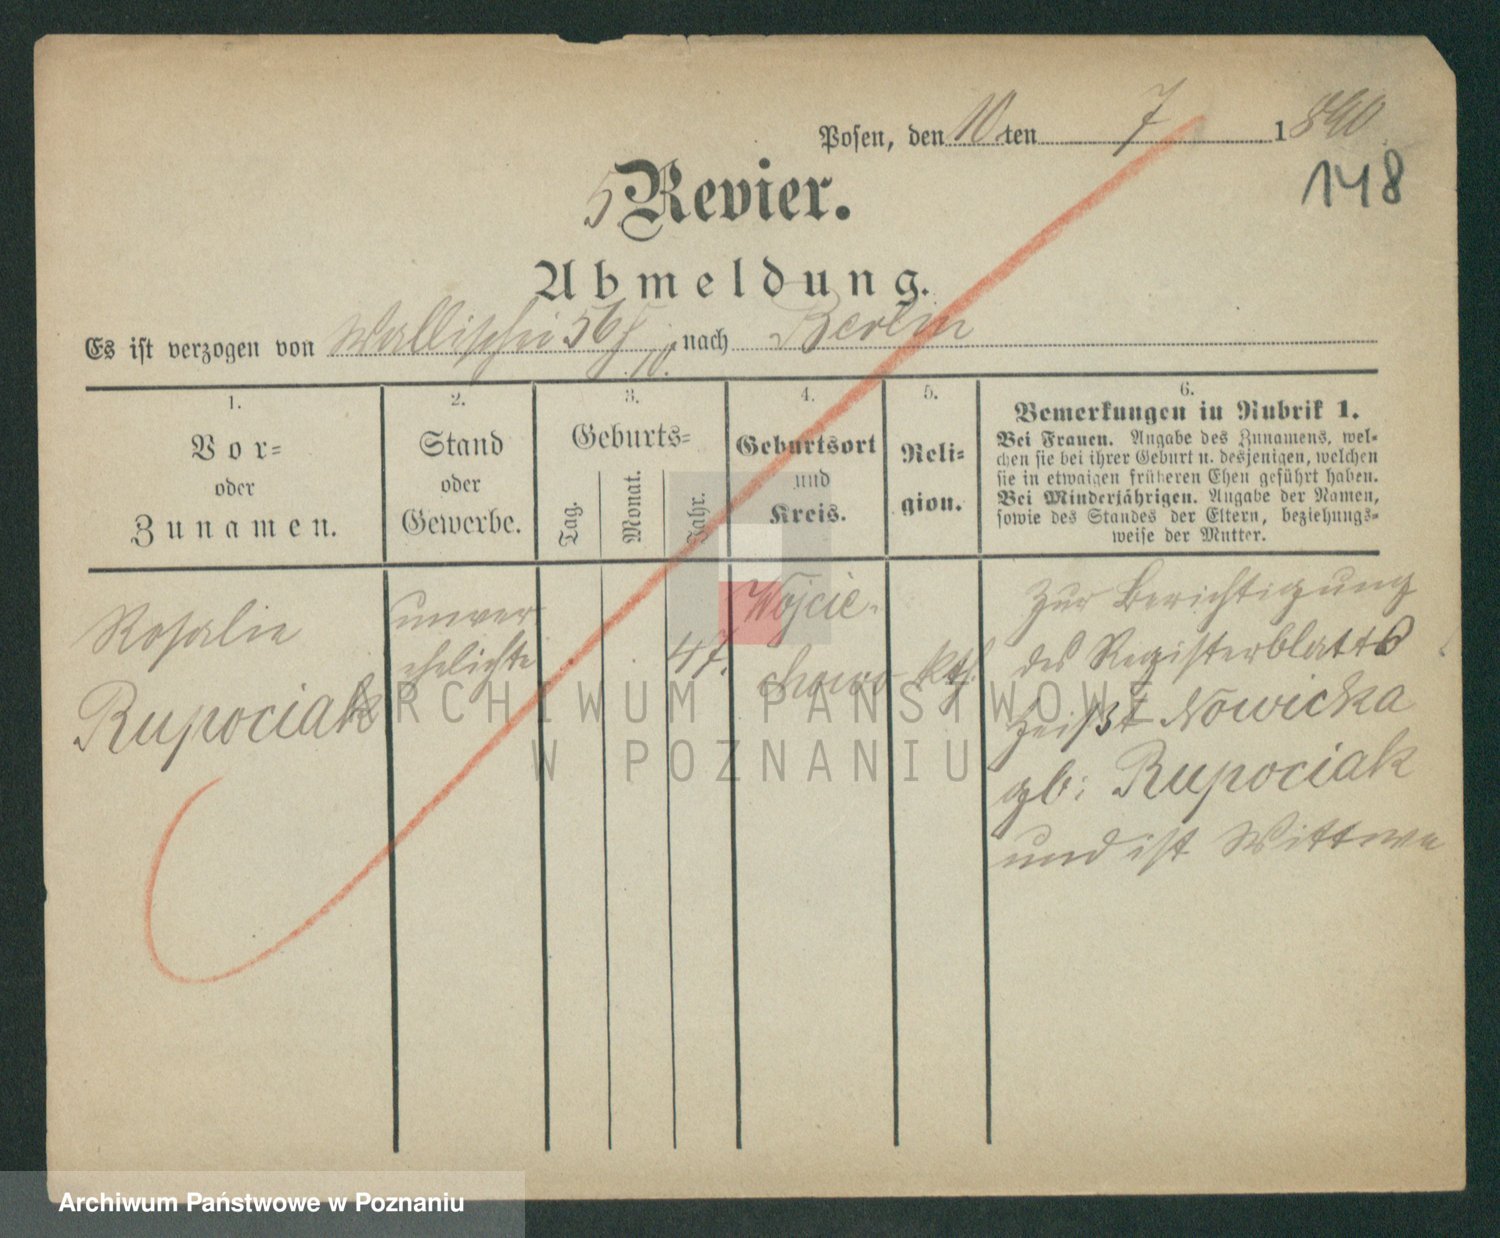 Posen, den 10 ten 7 1890
148
5 Revier.
Abmeldung.
Es ist verzogen von Wallischei 56/ nach Berlin
10.
1.
Vor-
oder
Zunamen.
2.
Stand
oder
Gewerbe.
3.
Geburts-
Tag.
Monat.
Jahr.
4.
Geburtsort
und
Kreis.
5.
Reli-
gion.
6.
Bemerkungen in Rubrik 1.
Bei Frauen. Angabe des Zunamens, wel-
chen sie bei ihrer Geburt u. desjenigen, welchen
sie in etwaigen früheren Ehen geführt haben.
Bei Minderjährigen. Angabe der Namen,
sowie des Standes der Eltern, beziehungs-
weise der Mutter.
Rosalie
Rupociak
unver
ehelichte
47.
Wojcie-
chowo
kth.
Zur Berichtigung
des Registerblatts
heißt Nowicka
gb: Rupociak
und ist Wittwe
ARCHIWUM PAŃSTWOWE
W POZNANIU
Archiwum Państwowe w Poznaniu